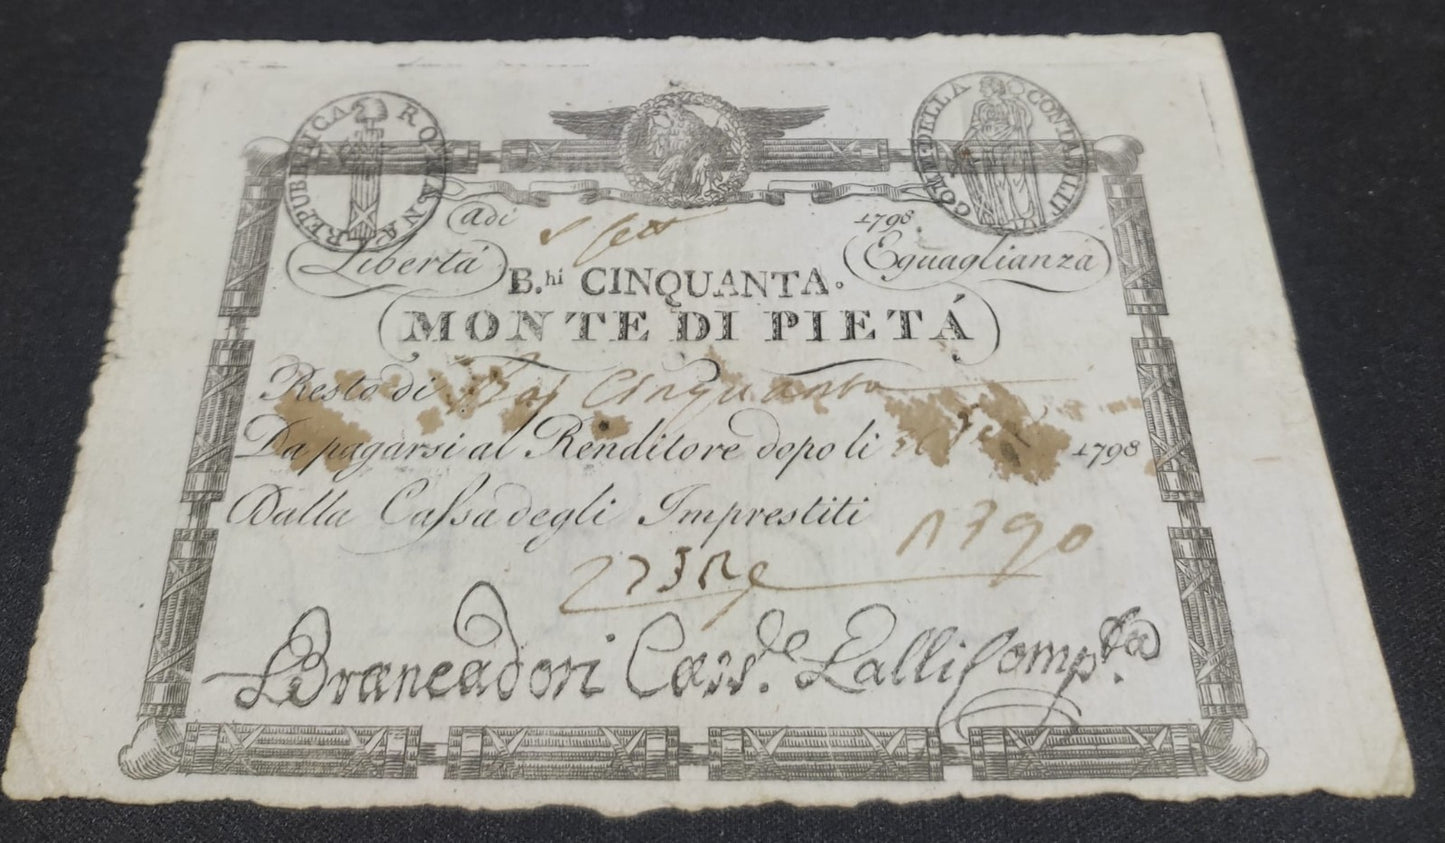 REPUBBLICA ROMANA
COMM. DELLA CONTABILIT
Adi 1798.
Libertà Eguaglianza
B.hi CINQUANTA.
MONTE DI PIETÁ
Resto di Baj Cinquanta
Da pagarsi al Renditore dopo li 1798
Dalla Cassa degli Imprestiti
1390
Brancadori Cass.e Lalli Comp.ta